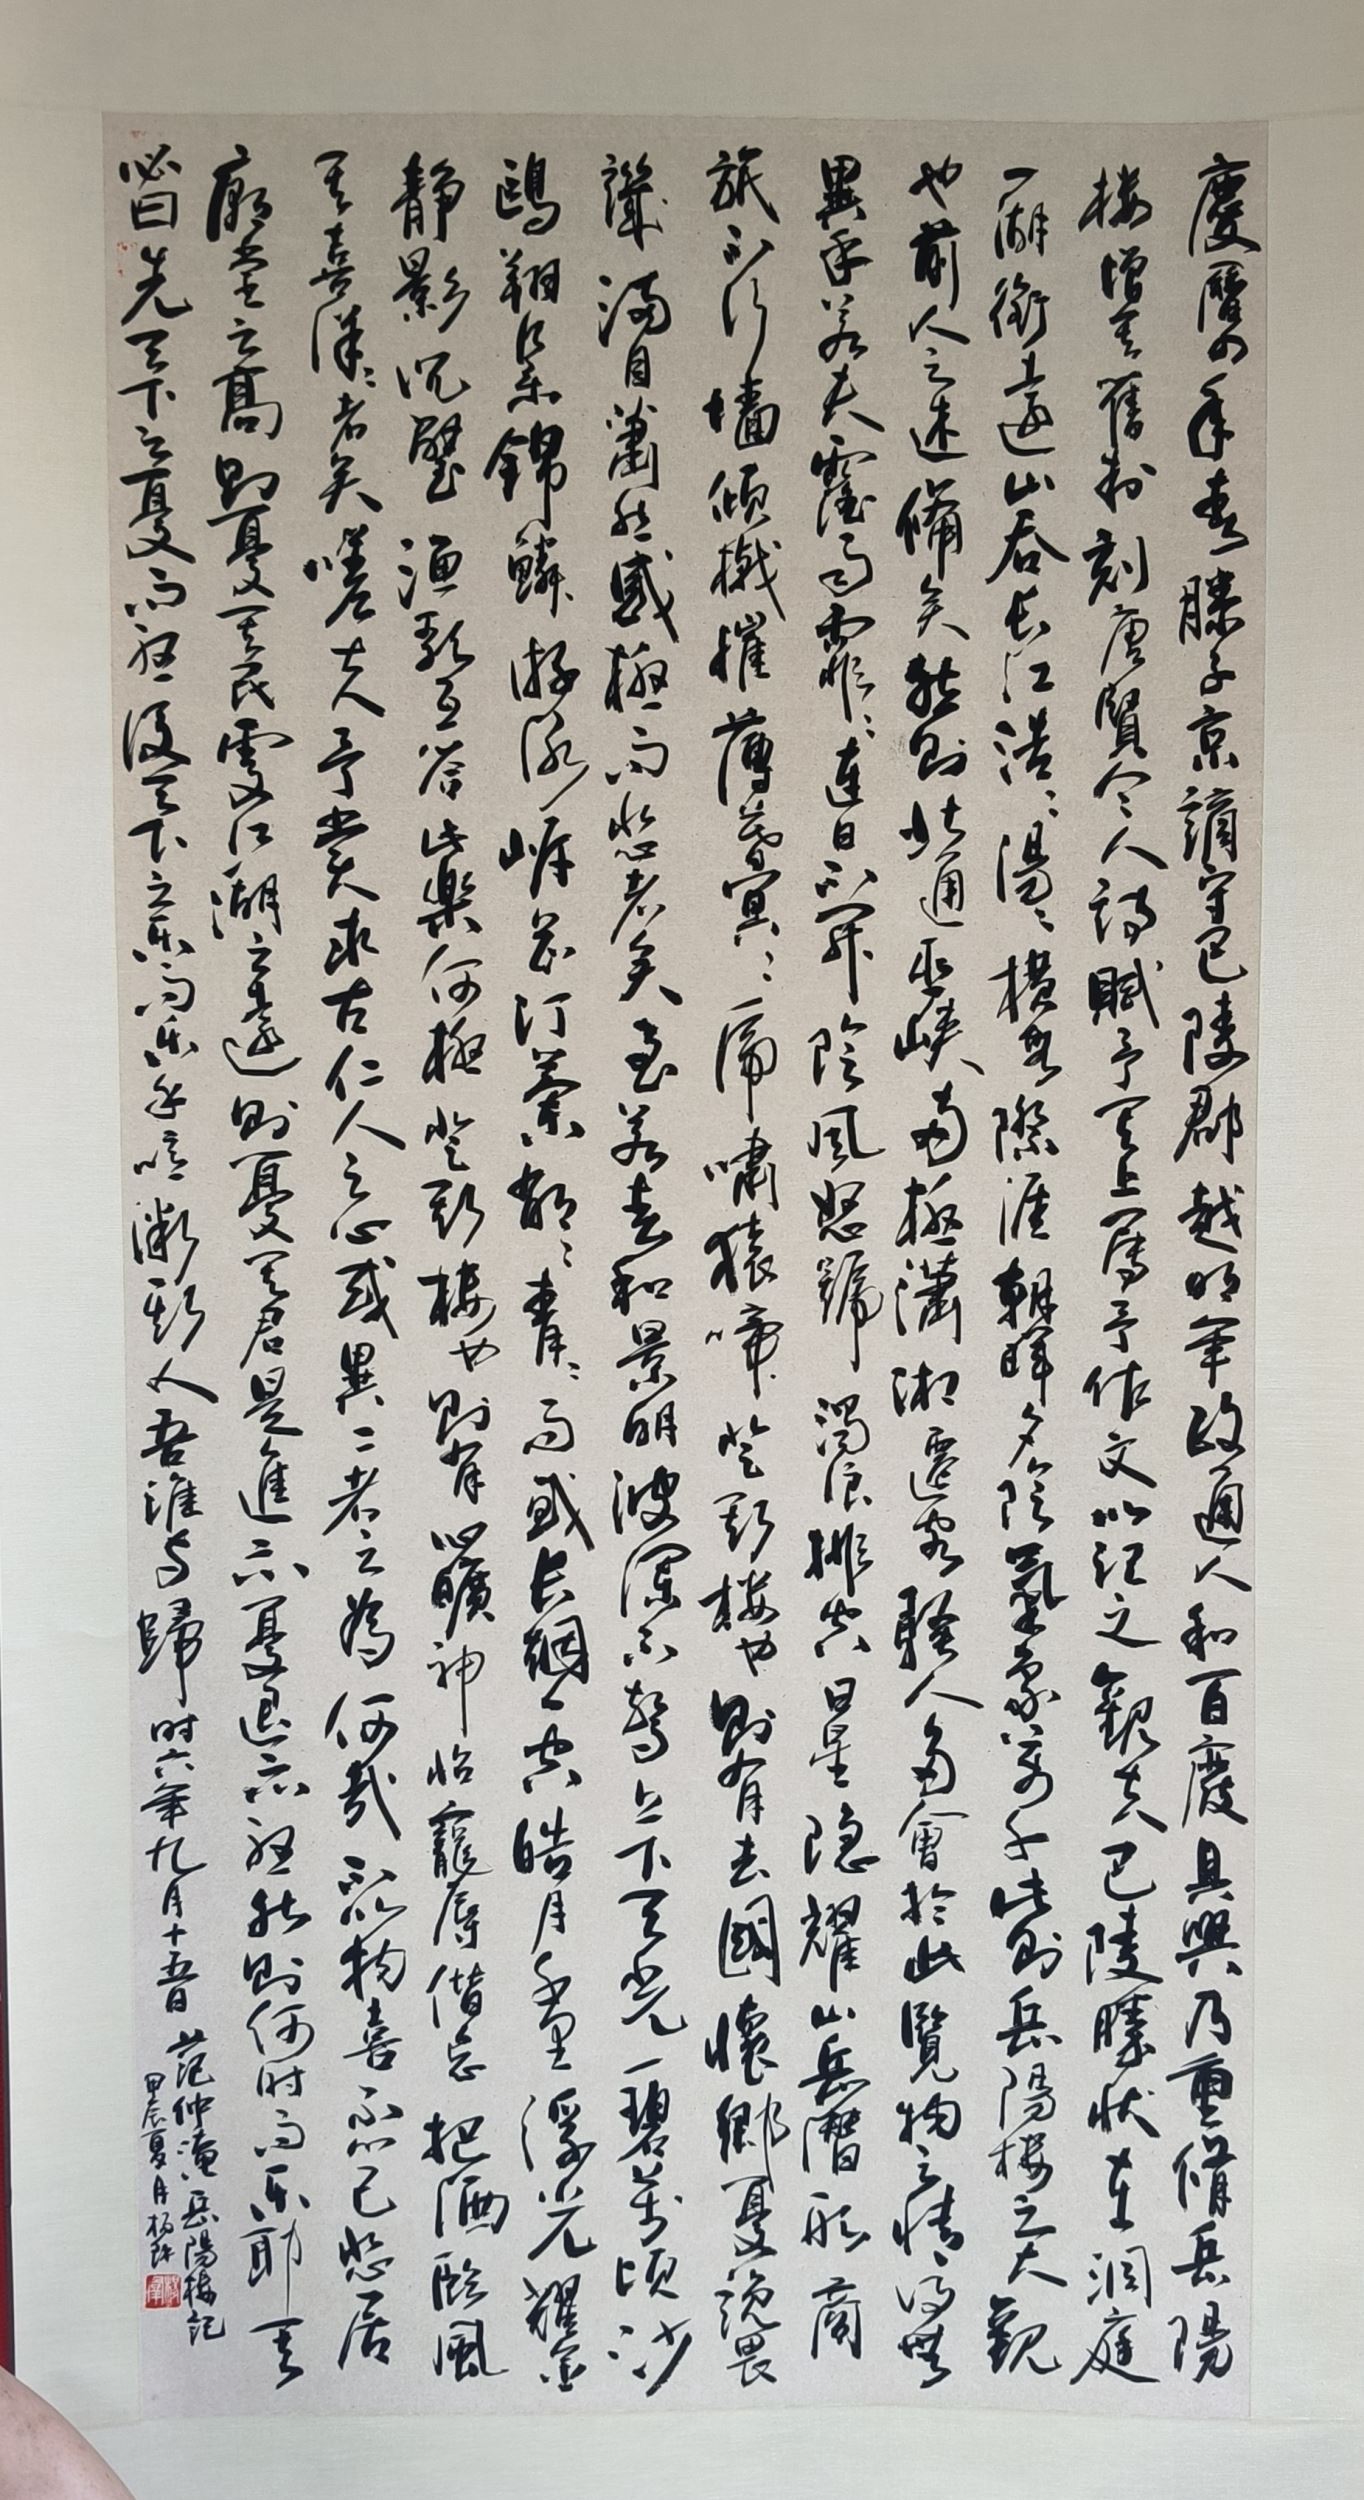 慶曆四年春滕子京謫守巴陵郡越明年政通人和百廢具興乃重脩岳陽
樓增其舊制刻唐賢今人詩賦于其上屬予作文以記之觀夫巴陵勝狀在洞庭
一湖銜遠山吞長江浩〻湯〻橫無際涯朝暉夕陰氣象萬千此則岳陽樓之大觀
也前人之述備矣然則北通巫峽南極瀟湘遷客騷人多會於此覽物之情得無
異乎若夫霪雨霏〻連日不開陰風怒號濁浪排空日星隐耀山岳潛形商
旅不行墻傾楫摧薄暮冥〻虎嘯猿啼登斯樓也則有去國懷鄉憂讒畏
譏滿目蕭然感極而悲者矣至若春和景明波瀾不驚上下天光一碧萬頃沙
鷗翔集錦鱗游泳岸芷汀蘭郁〻青〻而或長烟一空皓月千里浮光耀金
靜影沉璧漁歌互答此樂何極登斯樓也則有心曠神怡寵辱偕忘把酒臨風
其喜洋〻者矣嗟夫予嘗求古仁人之心或異二者之為何哉不以物喜不以己悲居
廟堂之高則憂其民處江湖之遠則憂其君是進亦憂退亦憂然則何时而樂耶其
必曰先天下之憂而憂後天下之樂而樂乎噫微斯人吾誰与歸时六年九月十五日
范仲淹岳陽樓記
甲辰夏月